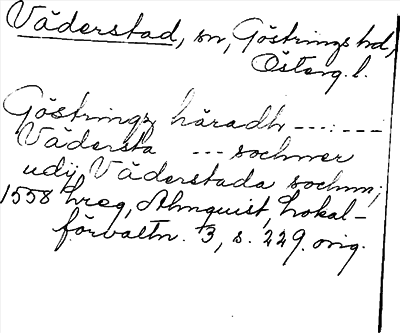 Väderstad, sn, Göstrings hd,
Österg. l.
Göstrings häradh ---:---
Vädersta --- sochner
udij Väderstada sochnn;
1558 hreg, Almquist, Lokal-
förvaltn. 3, s. 229. orig.